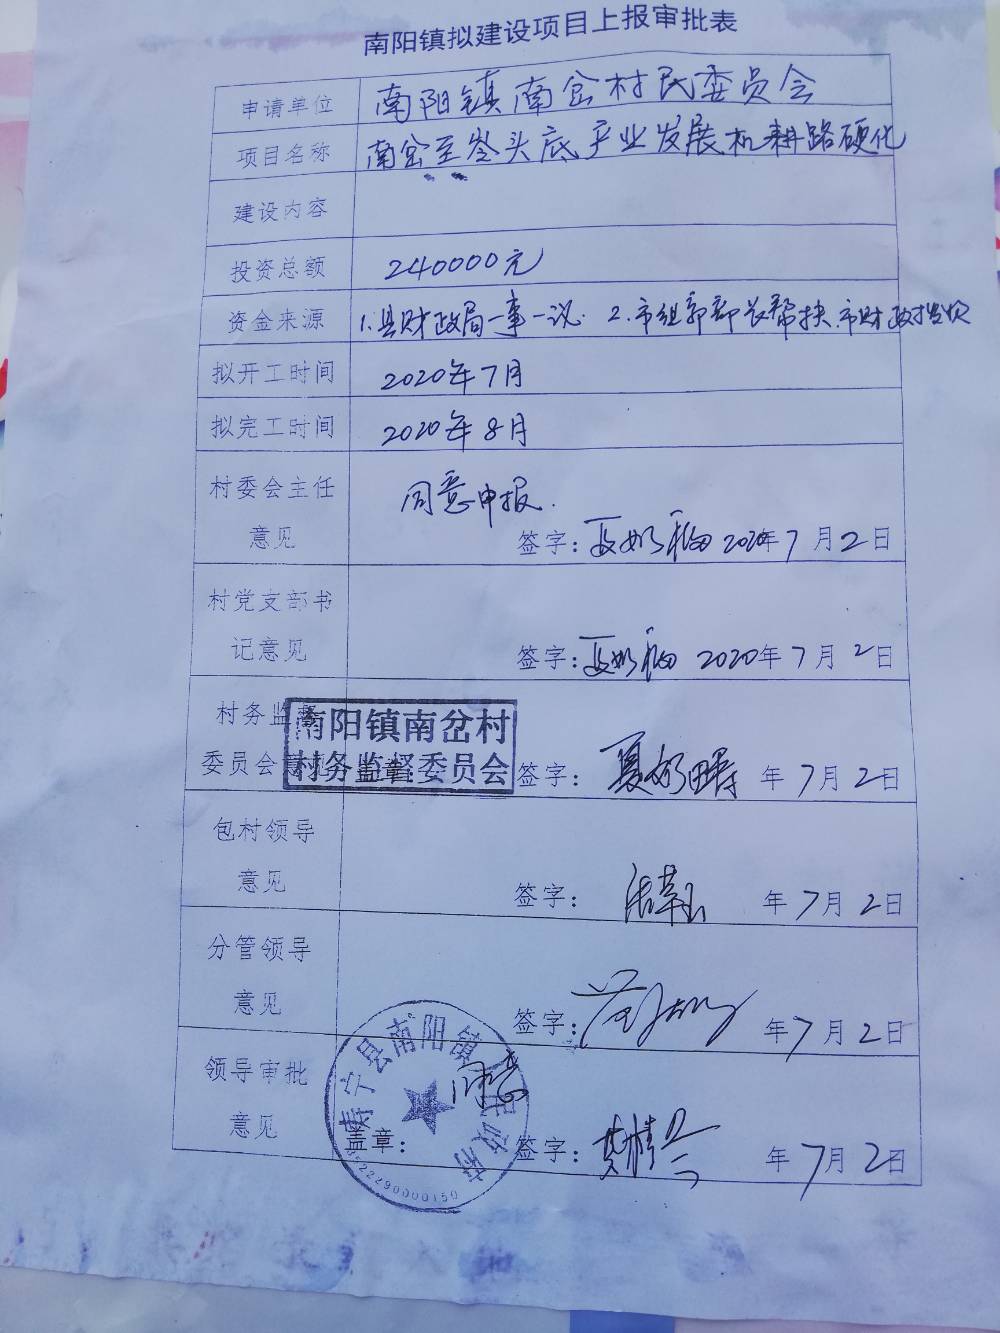 南阳镇拟建设项目上报审批表
申请单位 南阳镇南岔村民委员会
项目名称 南岔至岑头底产业发展机耕路硬化
建设内容
投资总额 240000元
资金来源 1.县财政局一事一议. 2.市组郭部长帮扶.市财政
拟开工时间 2020年7月
拟完工时间 2020年8月
村委会主任
意见
同意申报.
签字: 2020年7月2日
村党支部书
记意见
签字: 2020年7月2日
村务监督
委员会意见
盖章:
南阳镇南岔村
村务监督委员会
签字: 年7月2日
包村领导
意见
签字: 年7月2日
分管领导
意见
签字: 年7月2日
领导审批
意见
同意
盖章:
寿宁县南阳镇人民政府
签字: 年7月2日